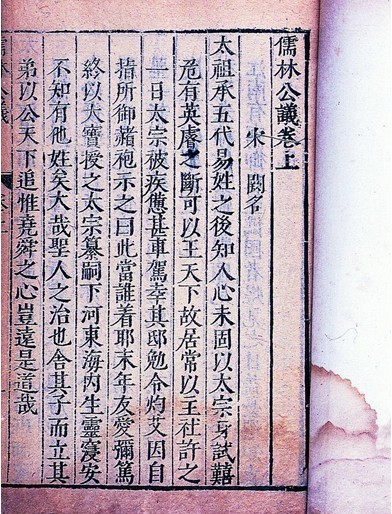 儒林公議卷上
宋 闕名
太祖承五代易姓之後知人心未固以太宗身試囏
危有英睿之斷可以王天下故居常以王社許之
一日太宗被疾憊甚車駕幸其邸勉令灼艾因自
指所御赭袍示之曰此當誰着耶末年友愛彌篤
終以大寶授之太宗纂嗣下河東海内生靈寖安
不知有他姓矣大哉聖人之治也舍其子而立其
弟以公天下追惟堯舜之心豈遠是道哉
儒林公議